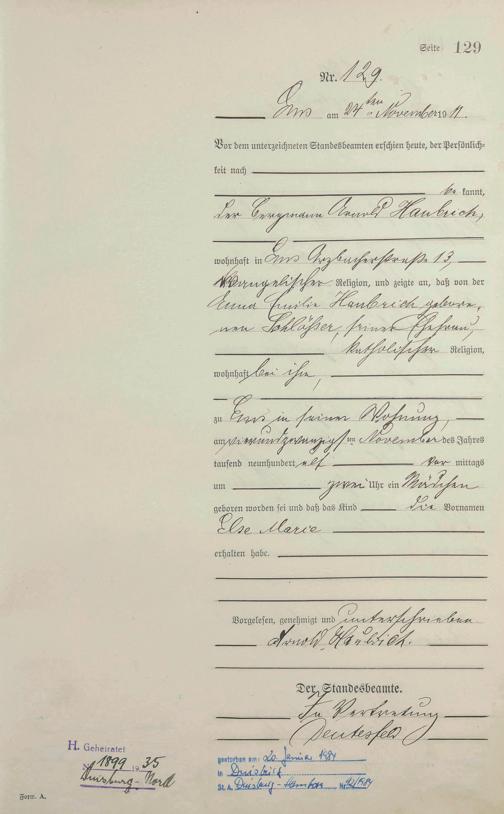 Seite 129
Nr. 129.
Ems am 24ten November 1911.
Vor dem unterzeichneten Standesbeamten erschien heute, der Persönlich-
keit nach
be kannt,
der Bergmann Arnold Haubrich,
wohnhaft in Ems Arzbacherstraße 13,
evangelischer Religion, und zeigte an, daß von der
Anna Emilie Haubrich gebore-
nen Schlößer, seiner Ehefrau,
katholischer Religion,
wohnhaft bei ihm,
zu Ems in seiner Wohnung,
am vierundzwanzigsten November des Jahres
tausend neunhundert elf vor mittags
um zwei Uhr ein Mädchen
geboren worden sei und daß das Kind die Vornamen
Else Marie
erhalten habe.
Vorgelesen, genehmigt und unterschrieben
Arnold Haubrich.
Der Standesbeamte.
In Vertretung
H. Geheiratet
1899 1935
Duisburg-Nord
gestorben am: 20. Januar 1984
in Duisburg
St. A. Duisburg-Hamborn Nr.
Form. A.